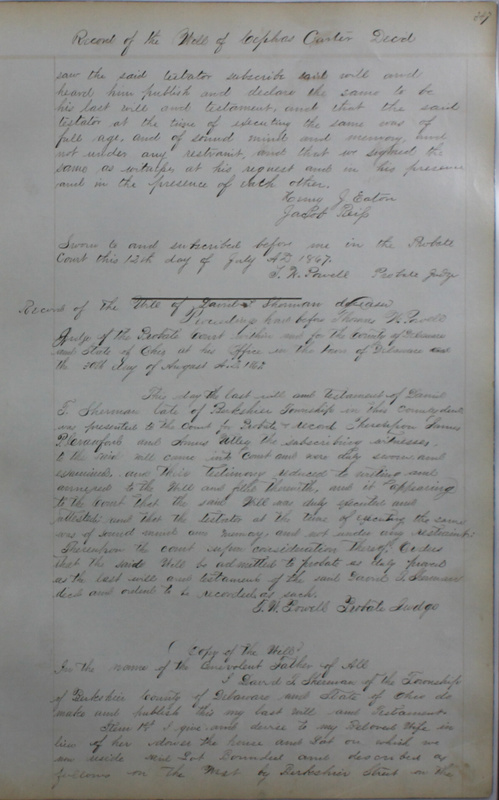 Record of the Will of Cephas Carter Decd
saw the said testator subscribe said will and
heard him publish and declare the same to be
his last will and testament, and that the said
testator at the time of executing the same was of
full age, and of sound mind and memory and
not under any restraint, and that we signed the
same as witnesses at his request and in his presence
and in the presence of each other.
Henry J Eaton
Jacob
Sworn to and subscribed before me in the Probate
Court this 12th day of July AD 1867.
T. W. Powell Probate Judge
Record of the Will of David Sherman deceased
Proceedings had before Thomas W. Powell
Judge of the Probate Court within and for the County of Delaware
and State of Ohio at his Office in the town of Delaware on
the 30th day of August A.D.
This day the last will and testament of David
T. Sherman late of Berkshire Township in this County decd
was presented to the Court for Probate & record Thereupon
P. Crawford and Utley the subscribing witnesses
to the said will came into Court and were duly sworn and
examined and their testimony reduced to writing and
annexed to the Will and filed therewith, and it appearing
to the Court that the said Will was duly executed and
attested and that the testator at the time of executing the same
was of sound mind and memory and not under any restraint
Thereupon the court upon consideration thereof Orders
that the said Will be admitted to probate as duly proved
as the last will and testament of the said David T. Sherman
decd and ordered to be recorded as such.
T. W. Powell Probate Judge
(Copy of the Will)
In the name of the Benevolent Father of All
I David T. Sherman of the Township
of Berkshire County of Delaware and State of Ohio do
make and publish this my last will and Testament
Item 1st I give and devise to my Beloved Wife in
lieu of her dower the house and Lot on which we
now reside said Lot Bounded and described as
follows on the West by Berkshire Street on the